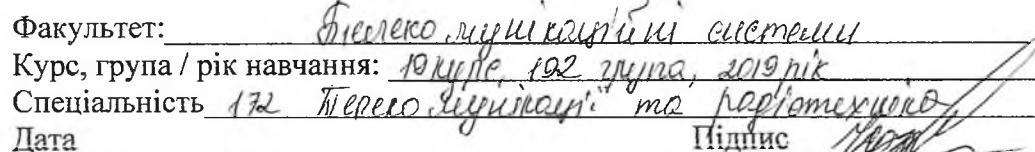 Факультет: Телекомунікаційні системи
Курс, група / рік навчання: 1й курс, 192 група, 2019 рік
Спеціальність 172 Телекомунікації та радіотехніка
Дата Підпис